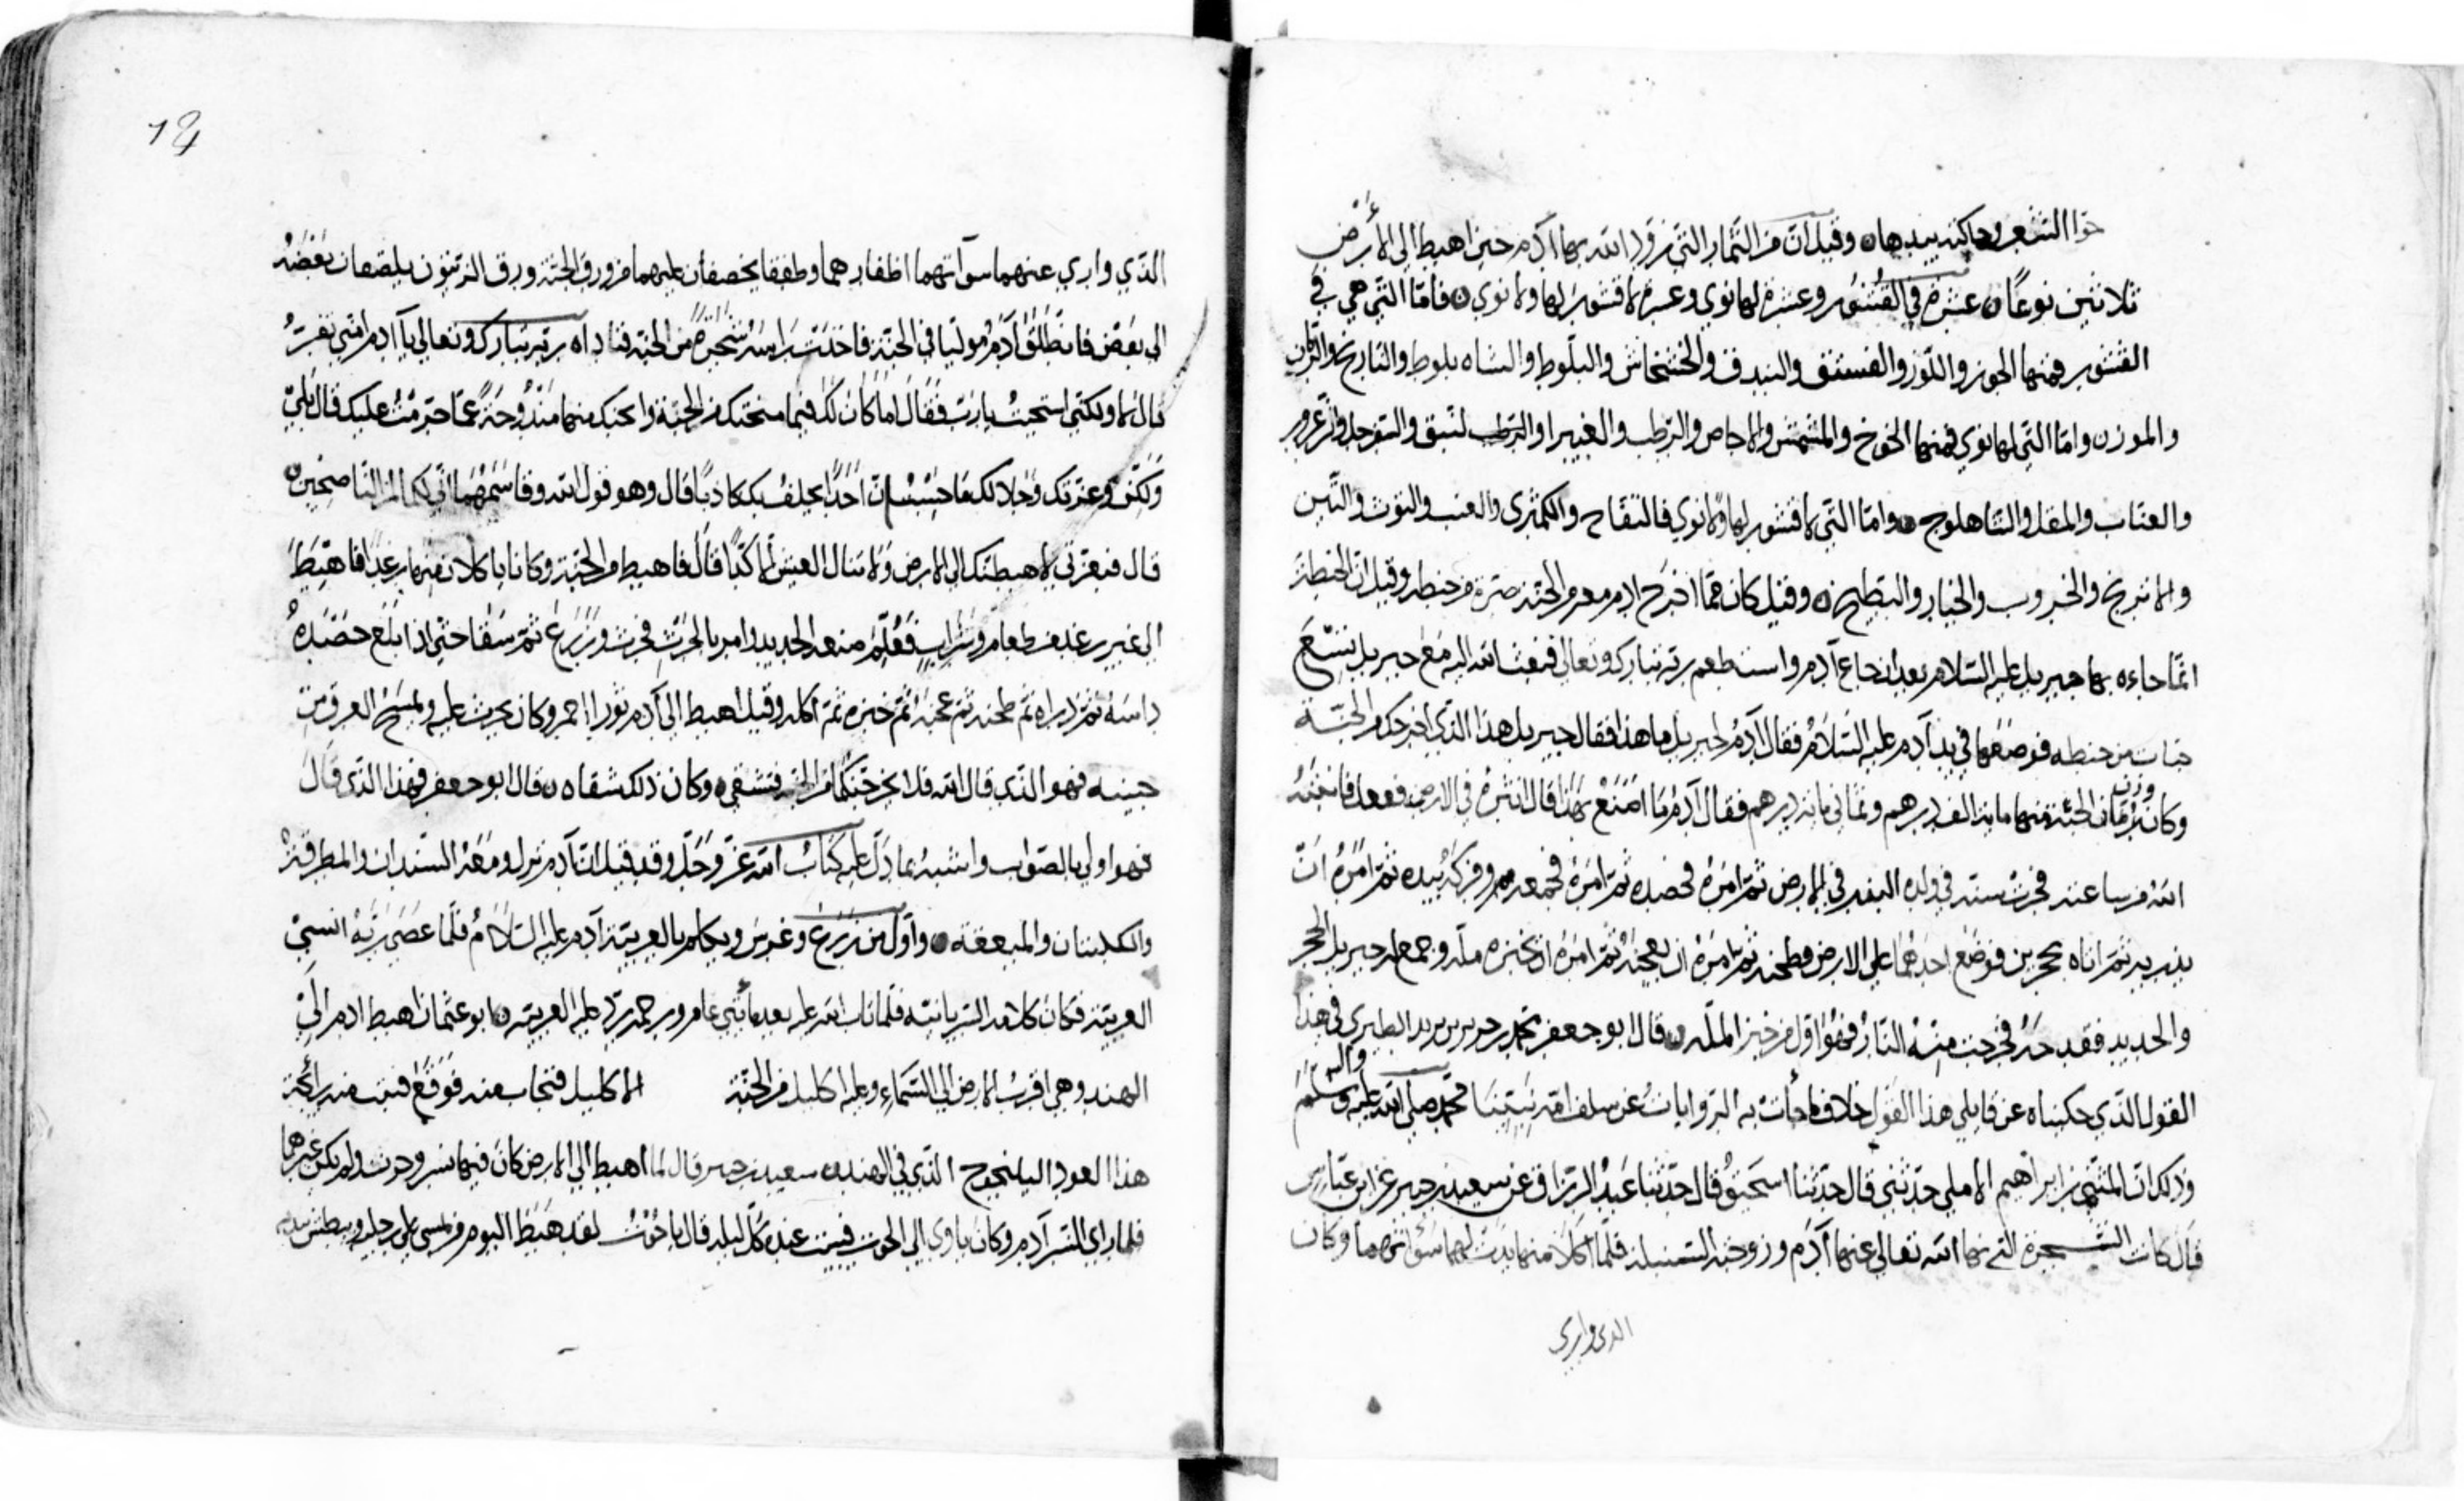 حوّا الشعر وحاكته بيدها ه وقيل انّ من الثّمار التّي زوّد الله بها آدم حين اهبط الي الأرض
ثلاثين نوعًا ه عشرة في القشور وعشرة لها نوي وعشرة لا قشور لها ولا نوي ه فأمّا التّي هي في
القشور فمنها الجوز واللّوز والفستق والبندق والخشخاش والبلّوط والشاه بلوط والنارنج والرّمان
والموز ه وامّا التّي لها نوي فمنها الخوخ والمشمش والاجاص والرّطب والغبيرا والنبق والزّعرور
والعنّاب والمقل والشاهلوج ه وامّا التّي لا قشور لها ولا نوي فالتفّاح والكمّثري والعنب والتوت والتّين
والاترنج والخروب والخيار والبطيخ ه وقيل كان ممّا اخرج ادم معه من الجنّة صرّة من حنطة وقيل انّ الحنطة
انّما جاءه بها جبريل عليه السّلام بعد ان جاع آدم واستطعم ربّه تبارك وتعالي فبعث الله اليه مع جبريل بسبع
حبّات من حنطه فوضعها في يد آدم عليه السّلام فقال آدم لجبريل ما هذا فقال جبريل هذا الذّي اخرجك من الجنّة
وزن
وكان الحبّة منها ماية الف درهم وثماني ماية درهم فقال آدم ما اصنع بهذا قال انثره في الارض ففعل فانبته
الله من ساعته فجرت سنّة في ولده البذر في الارض ثمّ امره فحصده ثمّ امره فجمعه وفركه بيده ثمّ امره انّ
يذريه ثمّ اتاه بحجرين فوضع احدهما علي الاخر فطحنه ثمّ امره ان يعجنه ثمّ امره ان يخبزه ملّة وجمع له جبريل الحجر
والحديد فقدحه فخرجت منه النّار فهو اوّل من خبز الملّه ه قال ابو جعفر محمد بن جرير بن يزيد الطبري في هذا
القول الذّي حكيناه عن قايلي هذا القول خلاف ما جأت به الروايات عن سلف امّة نبيّنا محمّد صلي الله عليه وسلّم
وذلك انّ المثنّي بن ابراهيم الاملي حدّثني قال حدّثنا اسحق قال حدّثنا عبد الرزّاق عن سعيد بن جبير عن ابن عبّاس
قال كانت الشجرة التي نها الله تعالي عنها آدم وزوجته السّنبلة فلمّا اكلا منها بدت لهما سؤاتهما وكان
الدى وارى
الذّي واري عنهما سوآتهما اظفارهما وطفقا يخصفان عليهما من ورق الجنّة ورق الزيتون يلصقان بعضه
الي بعض فانطلق آدم مولّيا في الجنّة فاخذت براسه شجرة من الجنّة فناداه ربّه تبارك وتعالي يآ آدم امنّي تفرّ
قال لا ولكنّي استحيت يا ربّ فقال اما كان لك فيما منحتك من الجنّة وابحتك منها مندوحة عمّا حرّمت عليك قال بليّ
ولكن وعزّتك وجلالك ما حسبت انّ احدًا يحلف بك كاذبًا قال وهو قول الله وقاسمهما انّي لكما لمن النّاصحين ه
قال فبعزّتي لاهبطنّك الي الارض ولا تنال العيش الا كدّا قال فاهبط من الجنّة وكانا ياكلان فيها رغدًا فاهبط
الي غير رغد من طعام وشراب فعلّم صنعة الحديد وامر بالحرث فحرث وزرع ثمّ سقا حتّي اذا بلغ حصده
داسه ثمّ ذراه ثمّ طحنه ثمّ عجنه ثمّ خبزه ثمّ اكله وقيل اهبط الي آدم ثورا احمر وكان يحرث عليه ويمسح العرق من
جبينه فهو الذّي قال الله فلا يخرجنّكما من الجنّة فتشقي ه وكان ذلك شقاه ه قال ابو جعفر فهذا الذّي قال
فهو اولي بالصّواب واشبه بما دلّ عليه كتاب الله عزّ وجلّ وقد قيل انّ آدم نزل ومعه السّندان والمطرقة
والكلبتان والميقعة ه واوّل من زرع وغرس وتكلم بالعربيّة آدم عليه السّلام فلمّا عصي ربّه انسي
العربيّة فكان كلامه السّريانيّة فلمّا تاب الله عليه بعد مأتي عام ورحمه ردّ عليه العربيّه ه ابو عثمان اهبط ادم الي
الهند وهي اقرب الارض الي السّماء وعليه اكليل من الجنّة الاكليل فتحات منه فوقع فنبت منه رائحة
هذا العود اليلنجوج الذّي في الهند ه سعيد بن جبير قال لما اهبط الي الارض كان فيها نسر وحوت ولم يكن غيرهما
فلما راي النّسر آدم وكان ياوي الي الحوت فيبيت عنده كلّ ليلة قال يا حوت لقد هبط اليوم من يمشي علي رجليه ويبطش بيديه